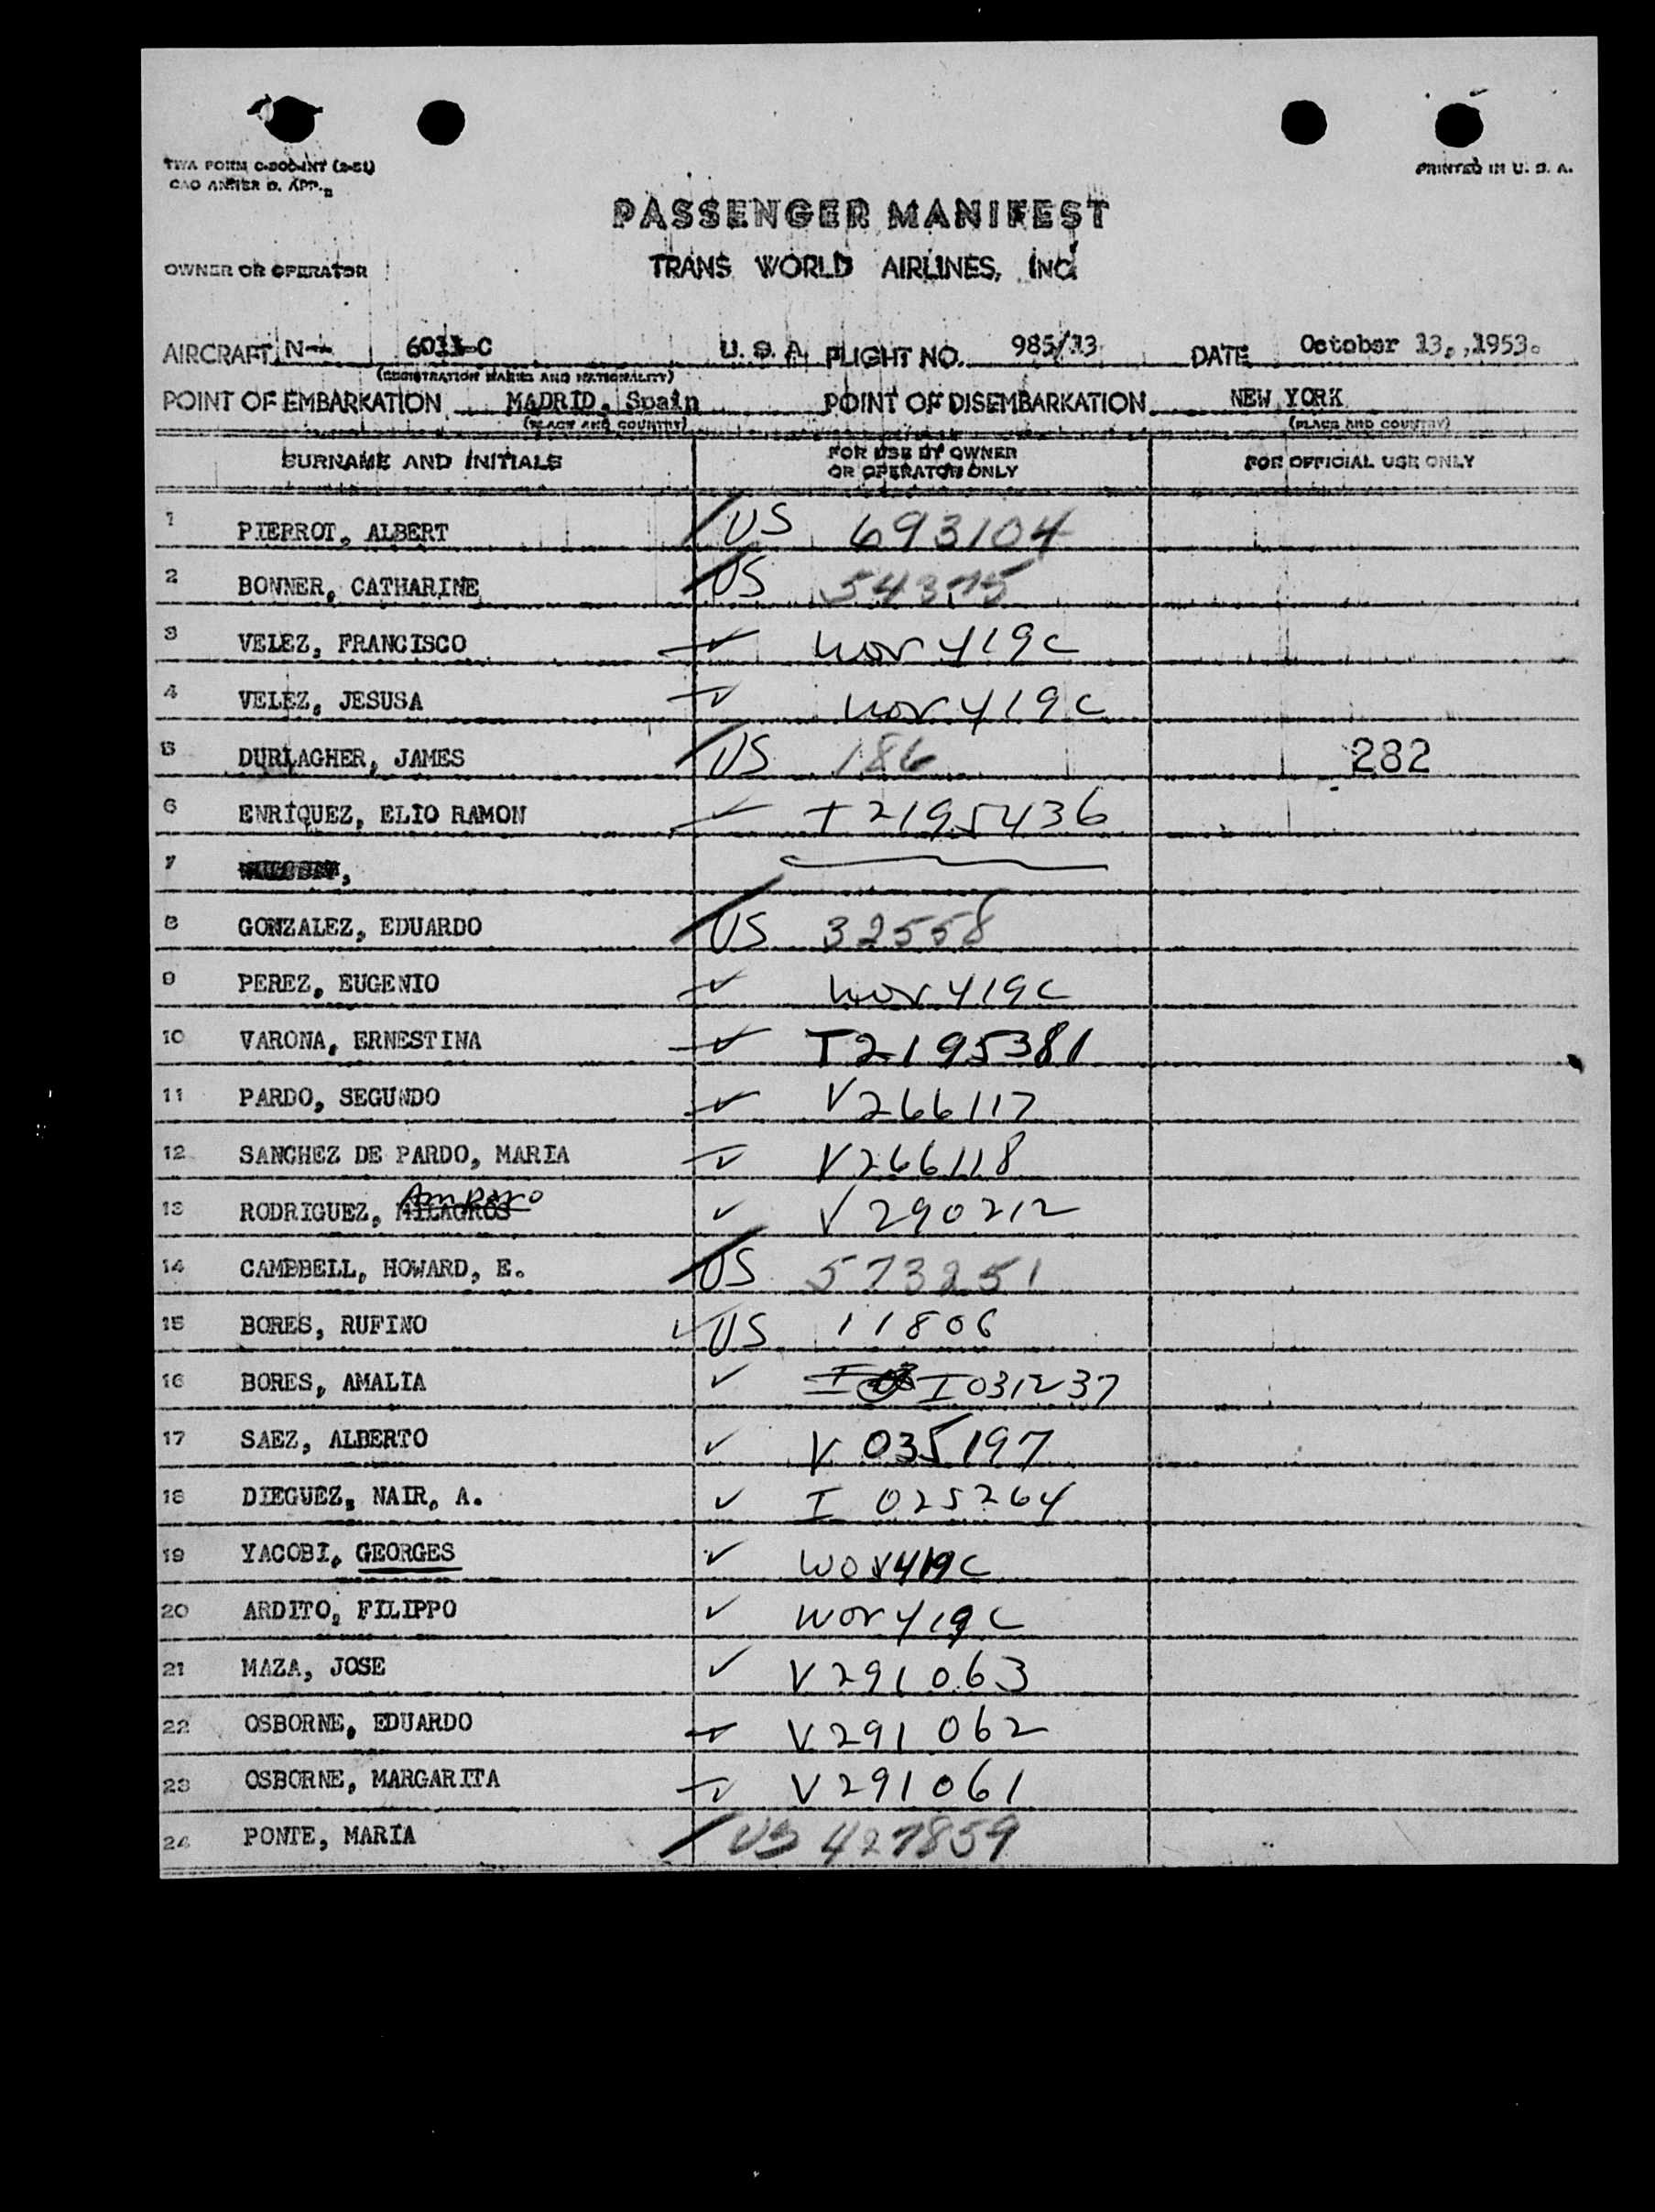 TWA FORM C-200-INT (2-51)
CAO ANNEX D. APP.
PRINTED IN U. S. A.
PASSENGER MANIFEST
OWNER OR OPERATOR
TRANS WORLD AIRLINES, INC.
AIRCRAFT N- C U. S. A. FLIGHT NO. 985/13 DATE October 13, ,1953.
(REGISTRATION MARKS AND NATIONALITY)
POINT OF EMBARKATION MADRID, Spain POINT OF DISEMBARKATION NEW YORK
(PLACE AND COUNTRY) (PLACE AND COUNTRY)
SURNAME AND INITIALS FOR USE BY OWNER OR OPERATOR ONLY FOR OFFICIAL USE ONLY
1 PIERROT, ALBERT US 693104
2 BONNER, CATHARINE US 54375
3 VELEZ, FRANCISCO ✓ wov 419c
4 VELEZ, JESUSA ✓ wov 419c
5 DURLAGHER, JAMES US 186 282
6 ENRIQUEZ, ELIO RAMON ✓ T2195436
7
8 GONZALEZ, EDUARDO US 32558
9 PEREZ, EUGENIO ✓ wov 419c
10 VARONA, ERNESTINA ✓ T2195381
11 PARDO, SEGUNDO ✓ V266117
12 SANCHEZ DE PARDO, MARIA ✓ V266118
13 RODRIGUEZ, MILAGROS Amparo ✓ V290212
14 CAMPBELL, HOWARD, E. US 573251
15 BORES, RUFINO ✓ US 11806
16 BORES, AMALIA ✓ I031237
17 SAEZ, ALBERTO ✓ V 035197
18 DIEGUEZ, NAIR, A. ✓ I 025264
19 YACOBI, GEORGES ✓ wov 419c
20 ARDITO, FILIPPO ✓ wov 419c
21 MAZA, JOSE ✓ V291063
22 OSBORNE, EDUARDO ✓ V291062
23 OSBORNE, MARGARITA ✓ V291061
24 PONTE, MARIA US 427859